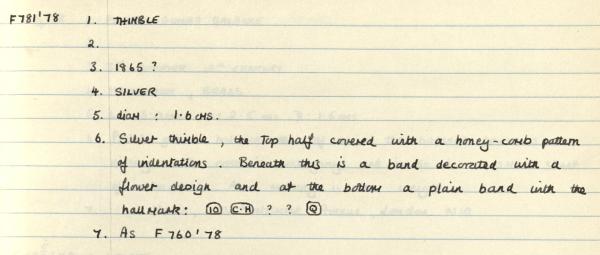 F781'78 1. THIMBLE
2.
3. 1865 ?
4. SILVER
5. diam : 1.6 cms.
6. Silver thimble, the top half covered with a honey-comb pattern
of indentations. Beneath this is a band decorated with a
flower design and at the bottom a plain band with the
hallmark: 10 C.H ? ? Q
7. As F760'78